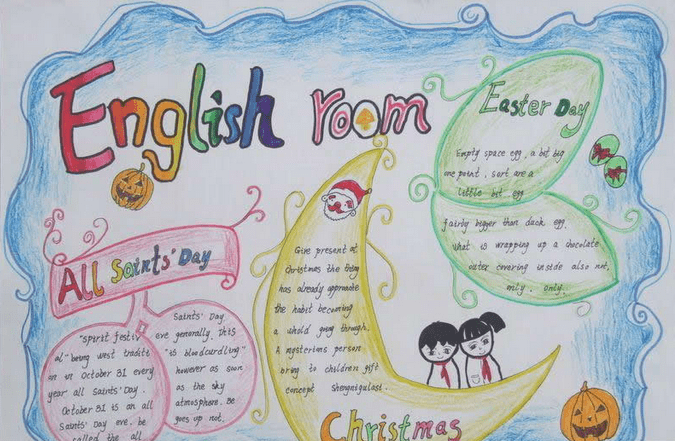 English room
Easter Day
Empty space egg, a bit big
one point, sort are a
little bit egg
fairly bigger than duck egg.
What is wrapping up a chocolate
outer covering inside also not,
only. only.
All Saints' Day
"Spirit festiv
al" being west traditi
on in October 31 every
year all Saints' Day.
October 31 is an all
Saints' Day eve. be
called the all
Saints' Day
eve generally. This
"is bloodcurdling"
however as soon
as the sky
atmosphere. Be
goes up not.
Give present at
Christmas the thing
has already approache
the habit becoming
a whold going through.
A mysterious person
bring to children gift
concept Shengnigulast.
Christmas